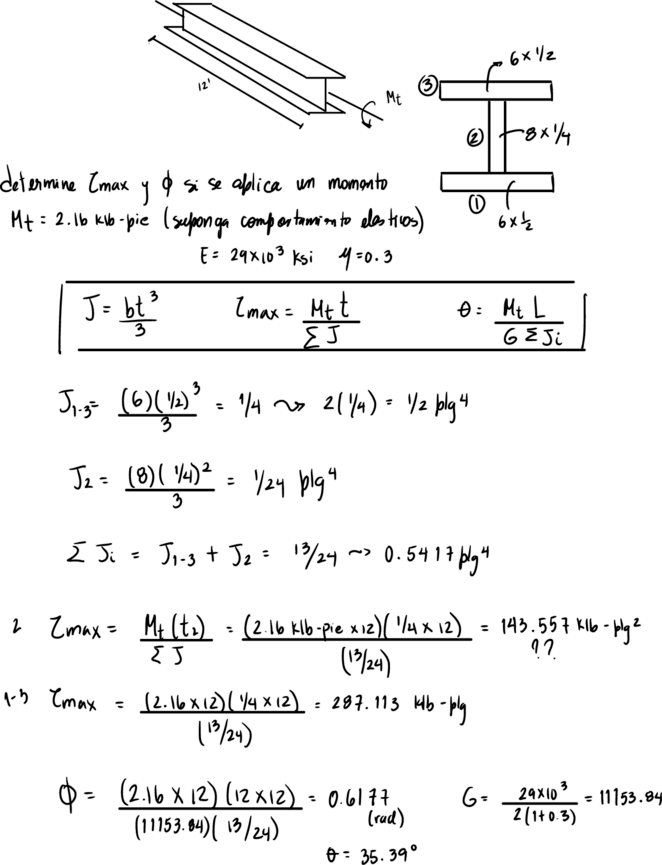 12'
Mt
6 x 1/2
③
②
8 x 1/4
①
6 x 1/2
determine τmax y ϕ si se aplica un momento
Mt = 2.16 klb-pie (suponga comportamiento elastivos)
E = 29x10³ ksi μ = 0.3
J = bt³/3 τmax = Mt t / Σ J θ = Mt L / G Σ Ji
J1-3 = (6)(1/2)³/3 = 1/4 ⤳ 2(1/4) = 1/2 plg⁴
J2 = (8)(1/4)²/3 = 1/24 plg⁴
Σ Ji = J1-3 + J2 = 13/24 ~> 0.5417 plg⁴
2 τmax = Mt (t2) / Σ J = (2.16 klb-pie x12)(1/4 x 12) / (13/24) = 143.557 klb-plg²
??
1-3 τmax = (2.16 x 12)(1/4 x 12) / (13/24) = 287.113 klb-plg
ϕ = (2.16 x 12)(12x12) / (11153.84)(13/24) = 0.6177 (rad) G = 29x10³ / 2(1+0.3) = 11153.84
θ = 35.39°